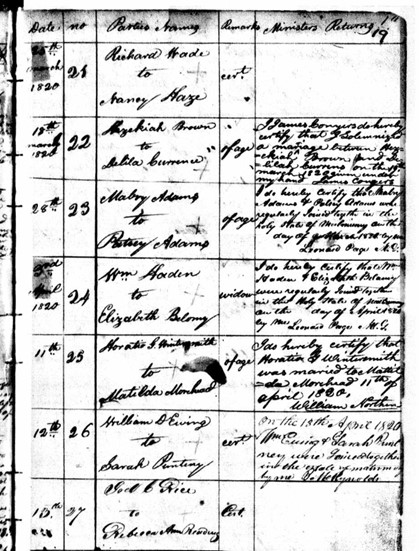 Date. no Parties Names Remarks Ministers Returns
19
March 21 Richard Wade cert.
1820 to
Nancy Haze
18th 22 Hezekiah Brown of age I James Conyers do hereby
March to certify that I Solemnizd
1820 Delila Currence a mariage between Heze
-kiah Brown and De
-lilah Currens on the
march 1820 given under
my hand James Conyers
28th 23 Mabry Adams of age I do hereby Certify that Mabry
to Adams & Patsey Adams were
Patsey Adams regularly Joind togeth in the
holy State of Matrimony on the
day of
Leonard Page M.G.
April 24 Wm Haden widow I do hereby Certify that Wm
1820 to Haden & Elizabeth Belomy
Elizabeth Belomy were regularly Joind together
in the Holy State of
on the day of April 1820
by me Leonard Page M.G.
11th 25 Horatio G Wintersmith of age I do hereby certify that
to Horatio G Wintersmith
Matilda Morehead was married to Matil
-da Morehead 11th of
april 1820,
William
12th 26 William D Ewing cert. on the 13th April 1820
to Wm Ewing & Sarah
Sarah were Joined together
in the estate of matrimony
by me
15th 27 C Rice Cert.
to
Rebecca Ann